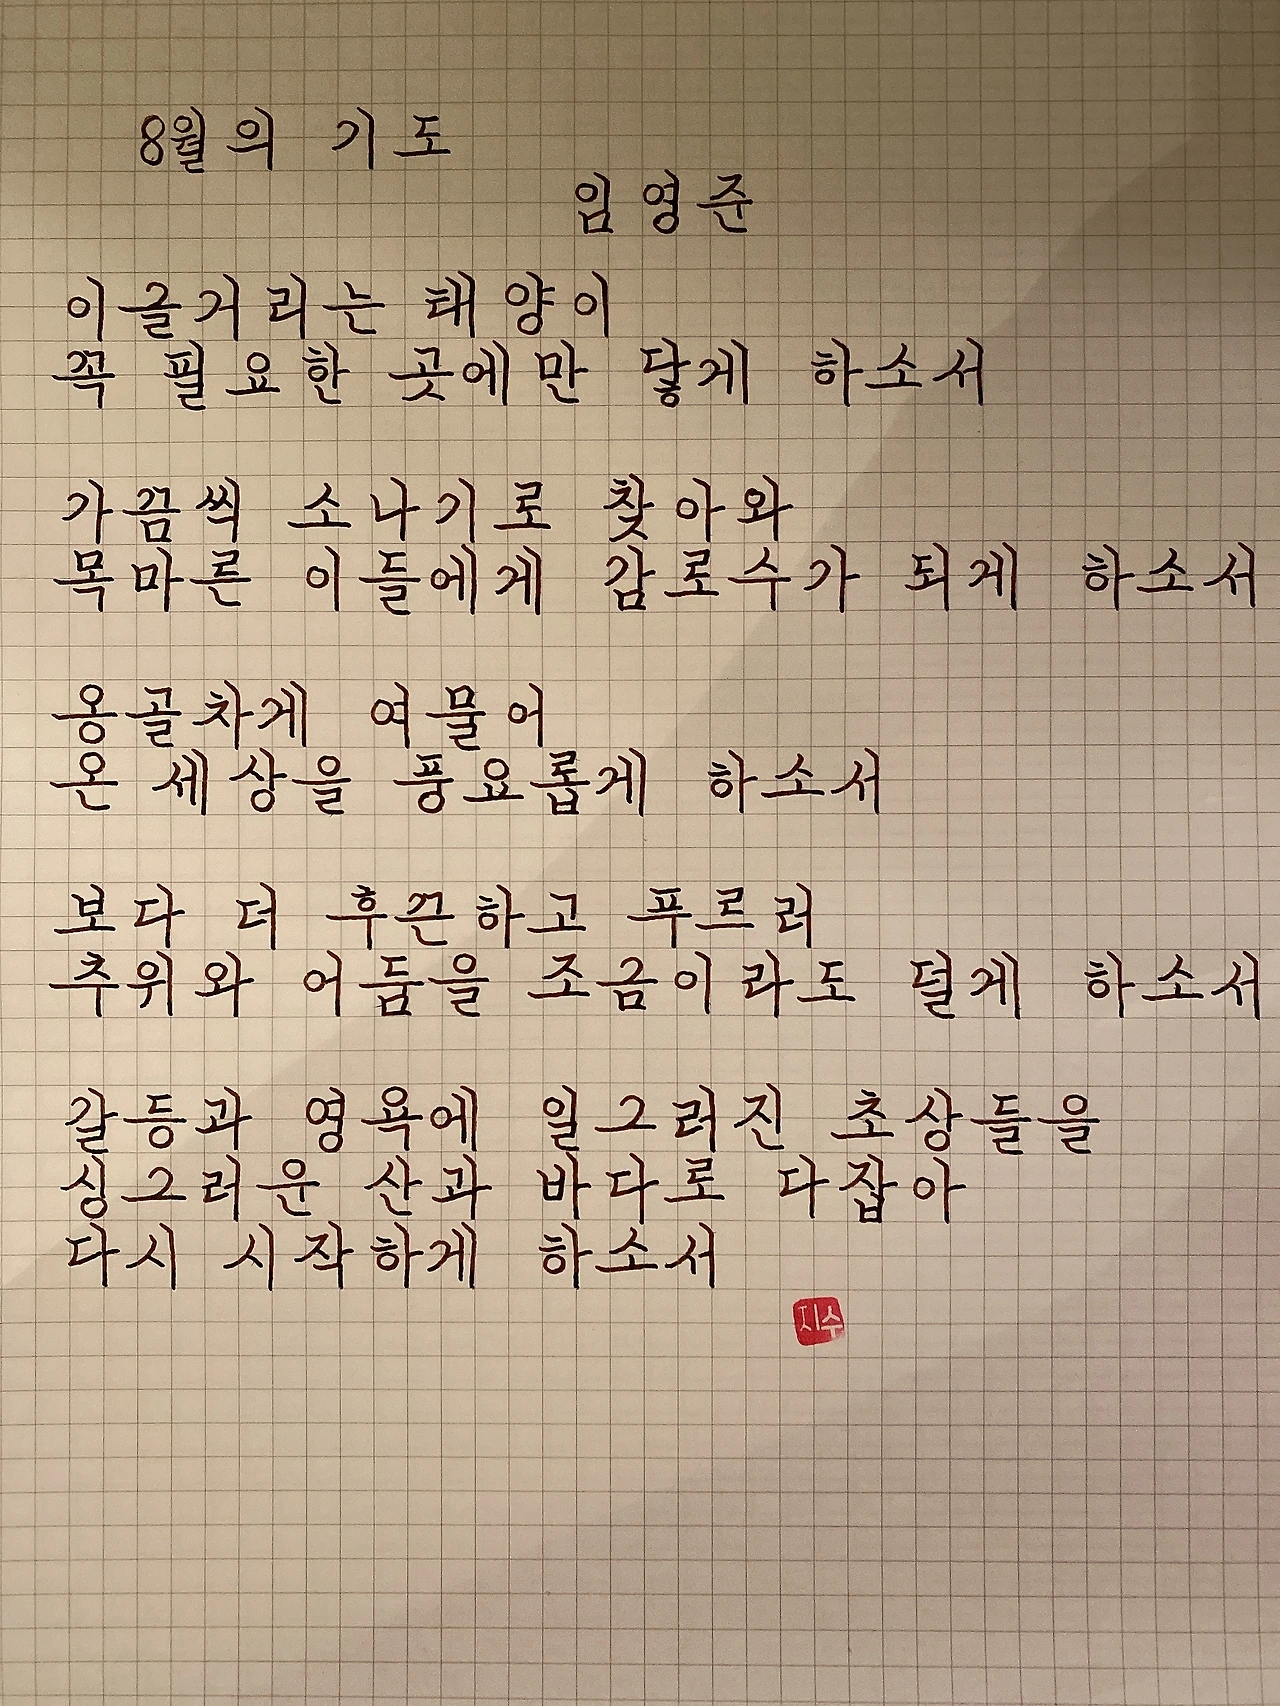 8월의 기도
임영준
이글거리는 태양이
꼭 필요한 곳에만 닿게 하소서
가끔씩 소나기로 찾아와
목마른 이들에게 감로수가 되게 하소서
옹골차게 여물어
온 세상을 풍요롭게 하소서
보다 더 후끈하고 푸르러
추위와 어둠을 조금이라도 덜게 하소서
갈등과 영욕에 일그러진 초상들을
싱그러운 산과 바다로 다잡아
다시 시작하게 하소서
지수